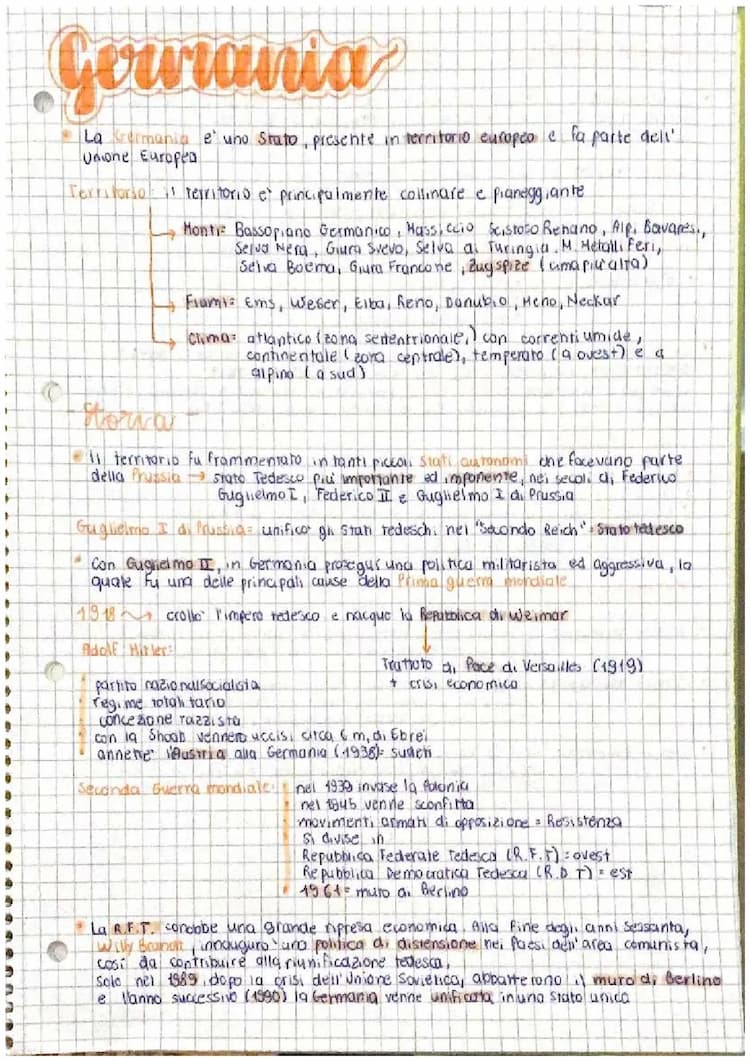 Germania
La Germania e' uno Stato, presente in territorio europeo e fa parte dell'
Unione Europea
Territorio: il territorio e' principalmente collinare e pianeggiante
Monti= Bassopiano Germanico, Massiccio Scistoso Renano, Alpi Bavaresi,
Selva Nera, Giura Svevo, Selva di Turingia, M. Metalliferi,
Selva Boema, Giura Francone, Zugspize (cima piu' alta)
Fiumi= Ems, Weser, Elba, Reno, Danubio, Meno, Neckar
Clima= atlantico (zona settentrionale,) con correnti umide,
continentale (zona centrale), temperato (a ovest) e a
alpino (a sud)
- Storia -
Il territorio fu frammentato in tanti piccoli Stati autonomi che facevano parte
della Prussia → stato Tedesco piu' importante ed imponente, nei secoli di Federico
Guglielmo I, Federico II e Guglielmo I di Prussia
Guglielmo I di Prussia= unifico' gli stati tedeschi nel "Secondo Reich" = Stato tedesco
Con Guglielmo II, in Germania prosegui' una politica militarista ed aggressiva, la
quale fu una delle principali cause della Prima guerra mondiale
1918 → crollo' l'impero tedesco e nacque la Repubblica di Weimar
Adolf Hitler:
Trattato di Pace di Versailles (1919)
+ crisi economica
partito nazionalsocialista
regime totalitario
concezione razzista
con la Shoah vennero uccisi circa 6 m. di Ebrei
annette' l'Austria alla Germania (1938)= sudeti
Seconda Guerra mondiale:
nel 1939 invase la Polonia
nel 1945 venne sconfitta
movimenti armati di opposizione = Resistenza
si divise in
Repubblica Federale Tedesca (R.F.T) = ovest
Repubblica Democratica Tedesca (R.D.T) = est
1961= muro di Berlino
La R.F.T. conobbe una grande ripresa economica. Alla fine degli anni sessanta,
Willy Brandt, innauguro' una politica di distensione nei paesi dell'area comunista,
cosi' da contribuire alla riunificazione tedesca,
solo nel 1989, dopo la crisi dell'Unione Sovietica, abbatterono il muro di Berlino
e l'anno successivo (1990) la Germania venne unificata in uno stato unico